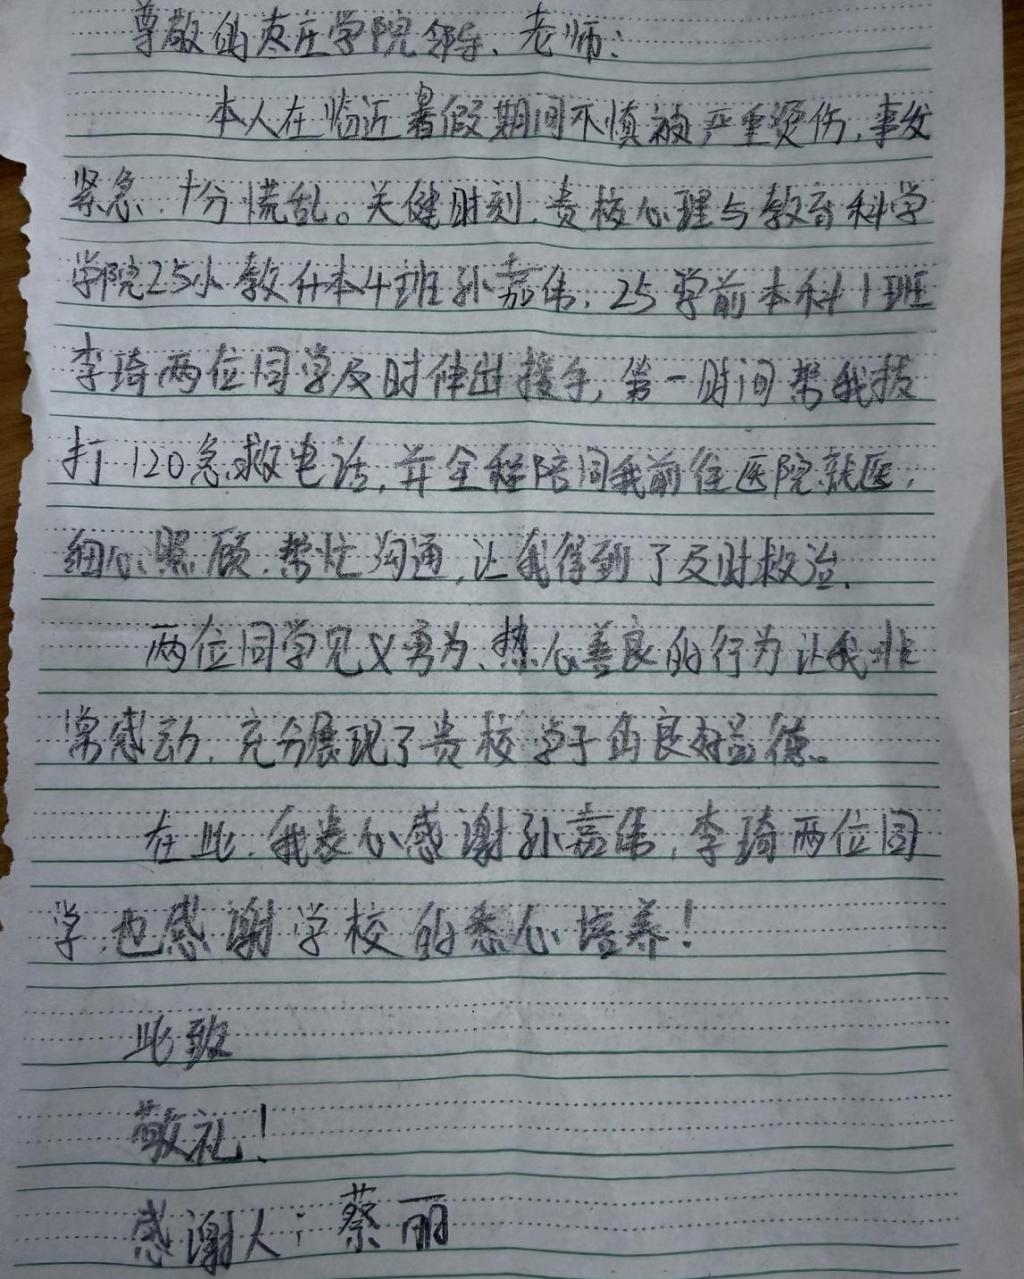 尊敬的枣庄学院领导、老师：
本人在临近暑假期间不慎被严重烫伤，事发
紧急，十分慌乱。关健时刻，贵校心理与教育科学
学院25小教升本4班孙嘉伟，25学前本科1班
李琦两位同学及时伸出援手，第一时间帮我拨
打120急救电话，并全程陪同我前往医院就医，
细心照顾，帮忙沟通，让我得到了及时救治．
两位同学见义勇为、热心善良的行为让我非
常感动，充分展现了贵校学子的良好品德。
在此，我衷心感谢孙嘉伟，李琦两位同
学，也感谢学校的悉心培养！
此致
敬礼！
感谢人：蔡丽